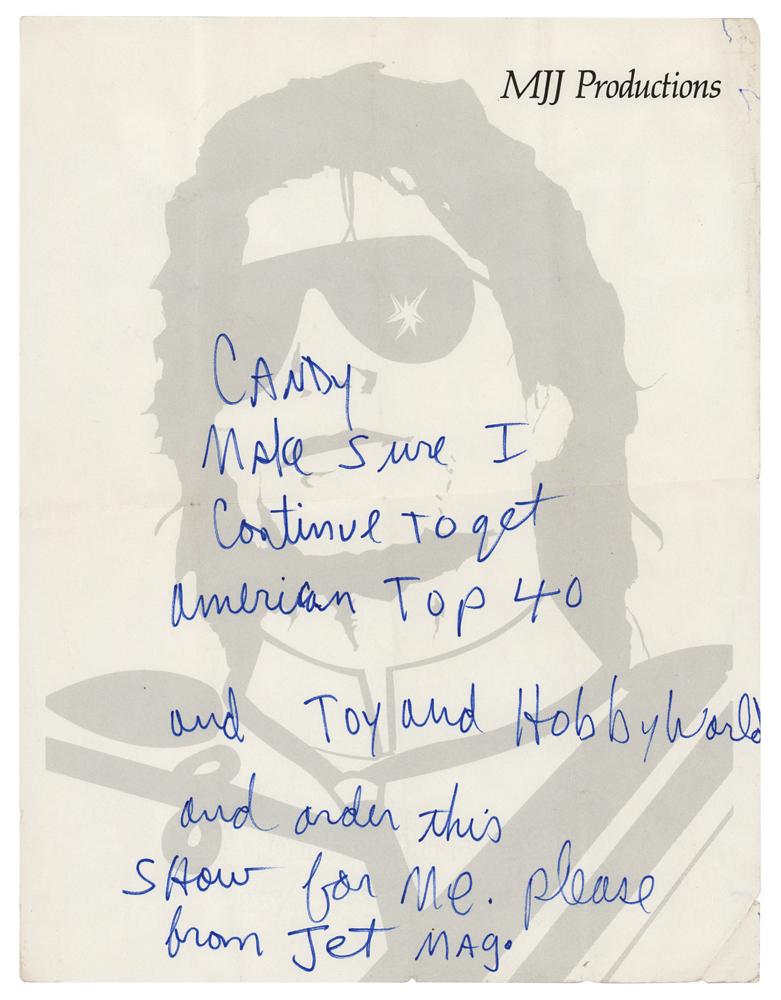 MJJ Productions
CANDY
Make sure I
Continue To get
American Top 40
and Toy and Hobby World
and order this
SHow for Me. please
from Jet MAg.